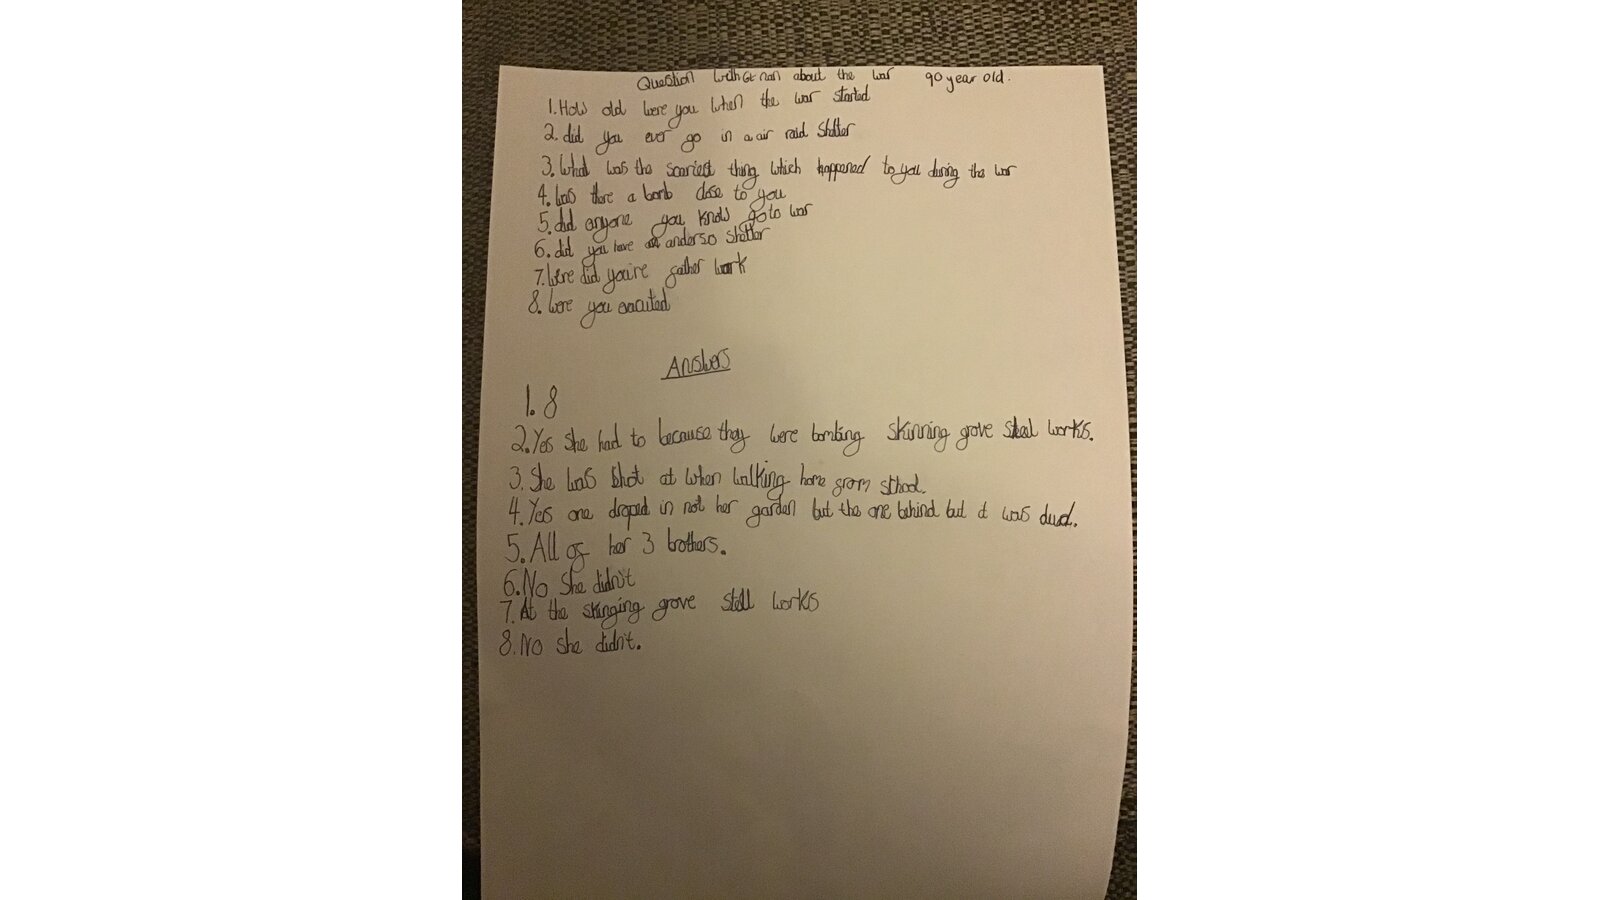 Question with Gt nan about the war 90 year old.
1. How old were you when the war started
2. did you ever go in a air raid Shelter
3. What was the scariest thing which happened to you during the war
4. Was there a bomb close to you
5. did anyone you know go to war
6. did you have an anderso shelter
7. Were did you're father work
8. Were you
Answers
1. 8
2. Yes she had to because they were bombing skinning grove steel works.
3. She was shot at when walking home from school.
4. Yes one droped in not her garden but the one behind but it was dud.
5. All of her 3 brothers.
6. No she didn't
7. At the skinging grove stell works
8. No she didn't.